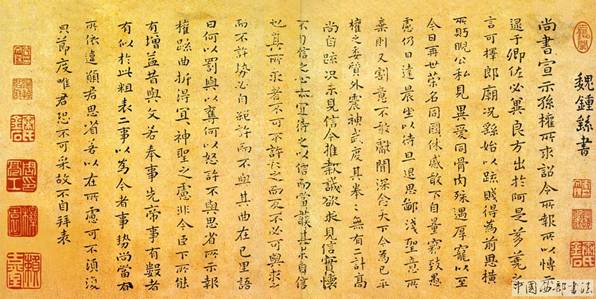 魏鍾繇書
尚書宣示孫權所求詔令所報所以博示
逮于卿佐必冀良方出於阿是芻蕘之
言可擇郎廟況繇始以疏賤得為前恩橫
所盻睨公私見異愛同骨肉殊遇厚寵以至
今日再世榮名同國休慼敢不自量竊致愚
慮仍日達晨坐以待旦退思鄙淺聖意所
棄則又割意不敢獻聞深念天下今為已平
權之委質外震神武度其拳拳無有二計高
尚自疏況未見信今推款誠欲求見信實懷
不自信之心亦宜待之以信而當護其未自信
也其所求者不可不許許之而反不必可與求之
而不許勢必自絕許而不與其曲在己里語
曰何以罰與以奪何以怒許不與思省所示報
權疏曲折得宜宜神聖之慮非今臣下所能
有增益昔與文若奉事先帝事有數者
有似於此粗表二事以為今者事勢尚當有
所依違願君思省若以在所慮可不須復
貌節度唯君恐不可采故不自拜表
中国西部书法